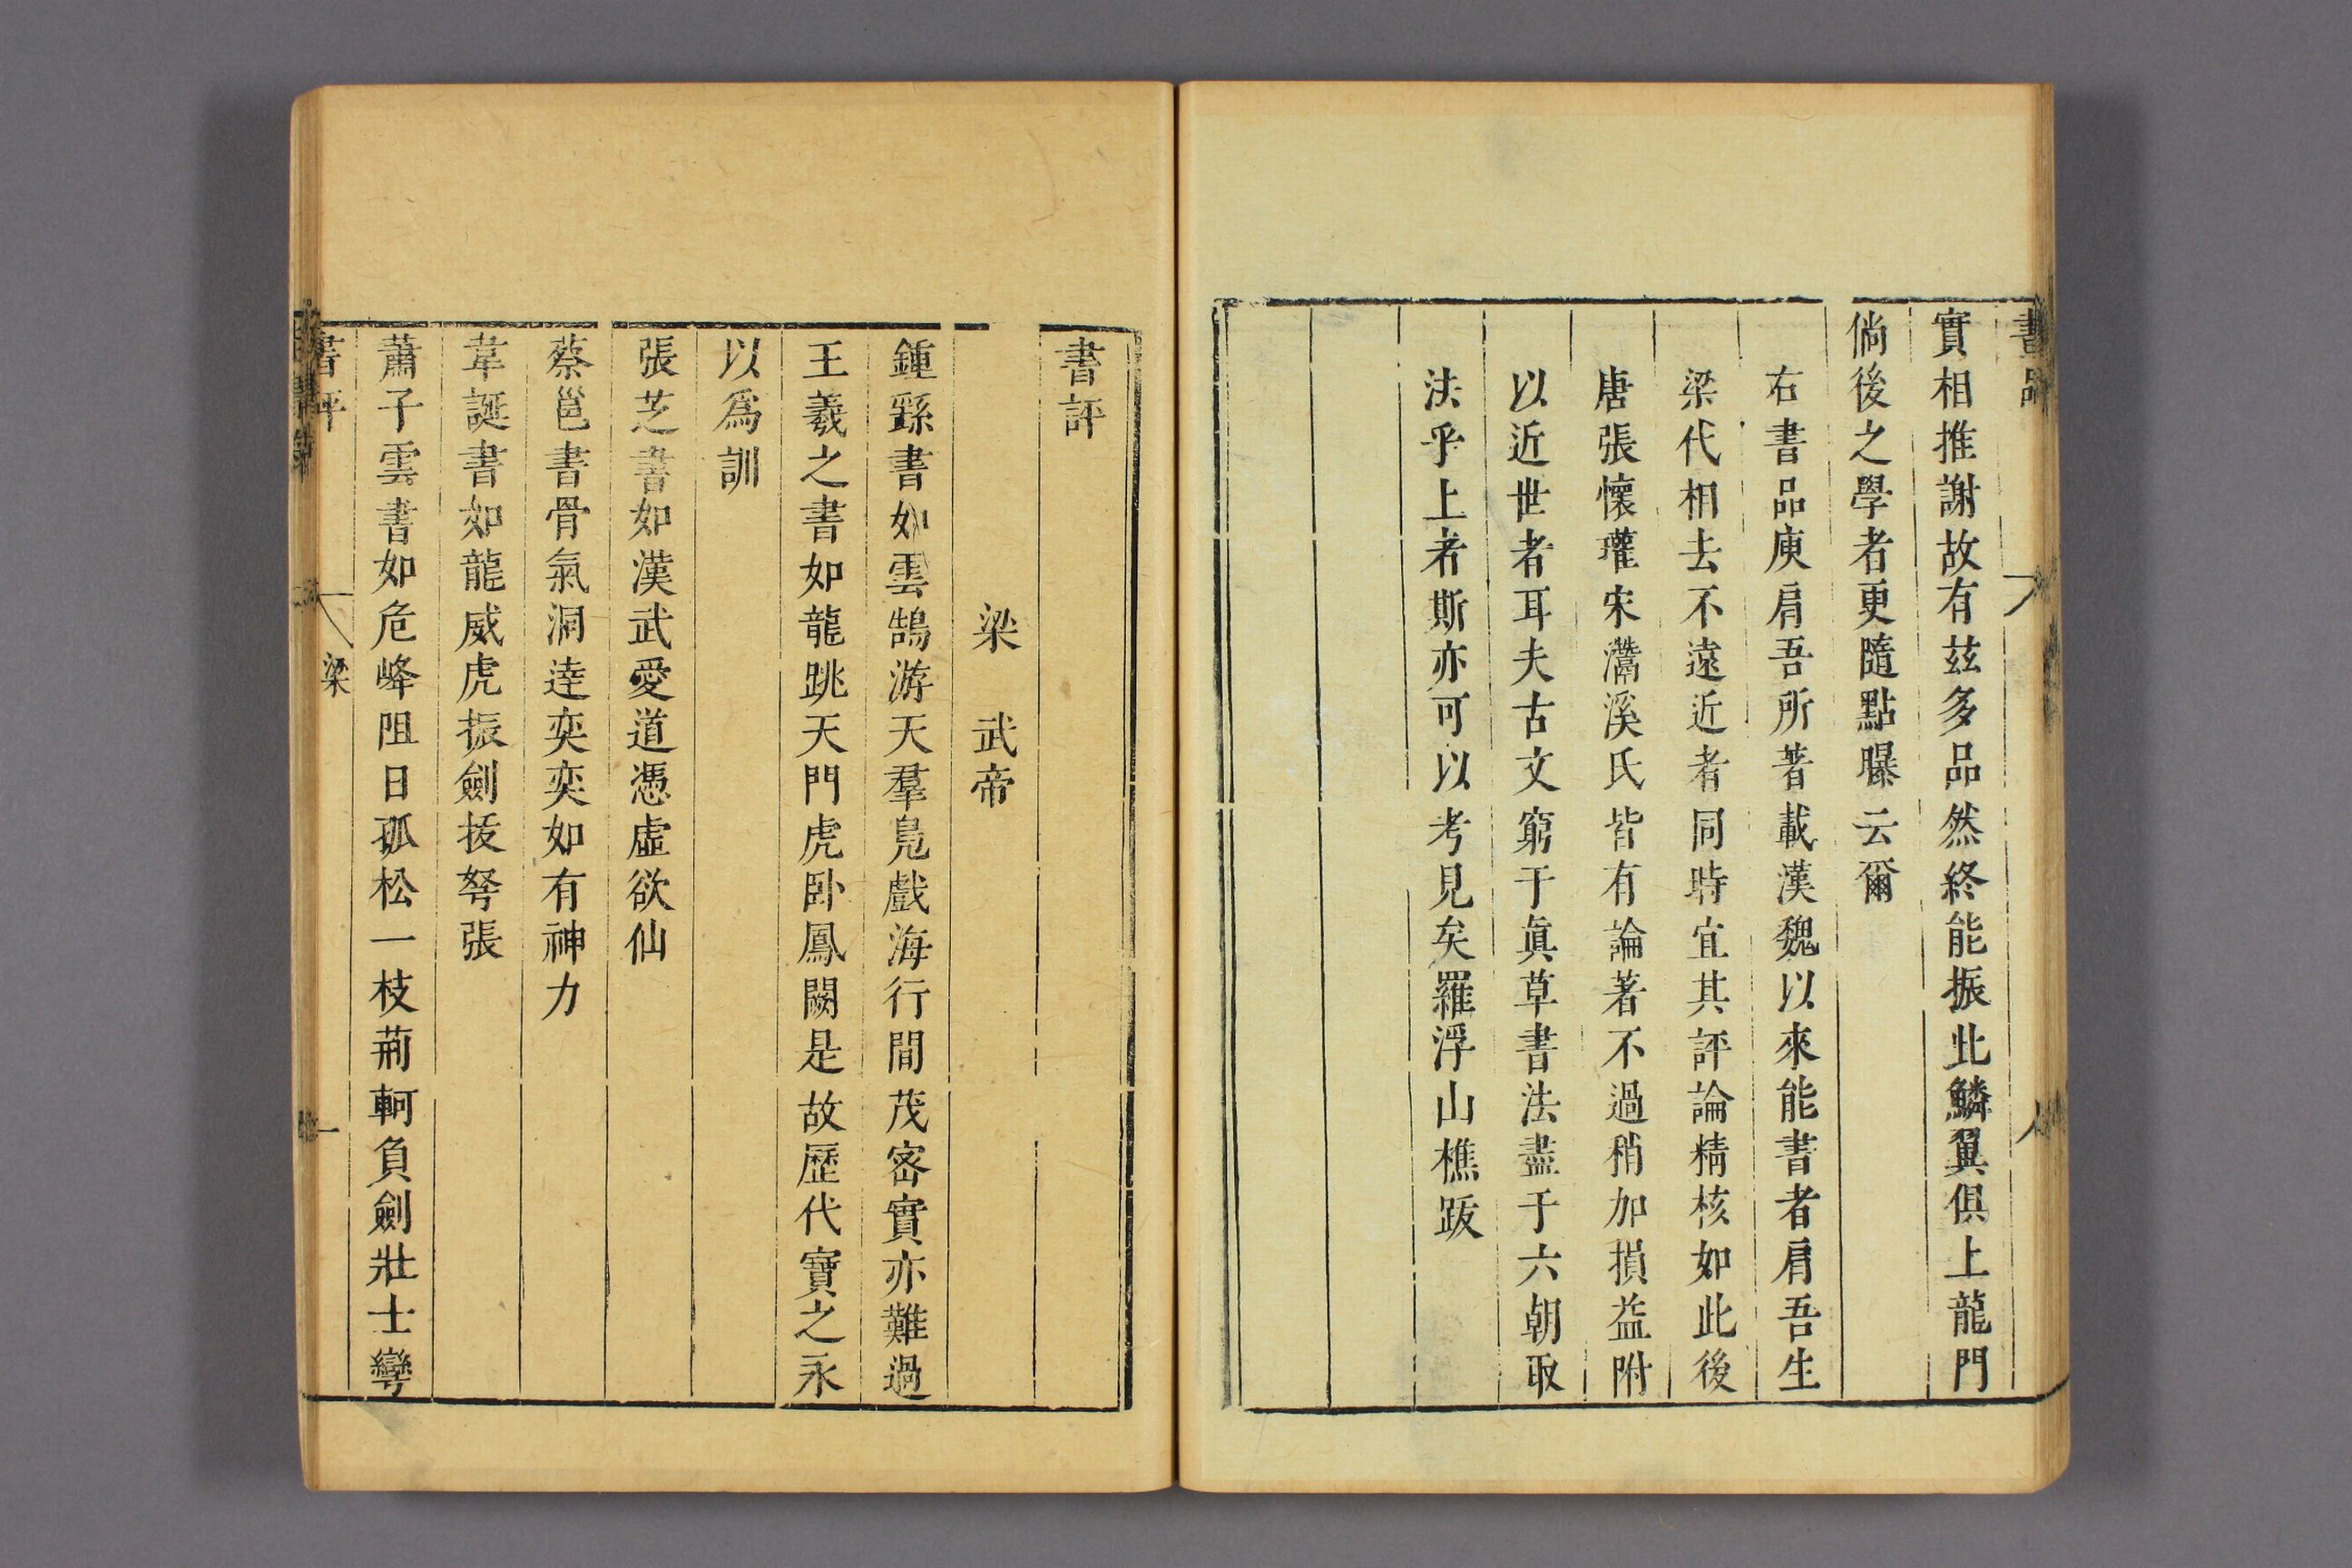 書品
實相推謝故有玆多品然終能振此鱗翼俱上龍門
倘後之學者更隨點曝云爾
右書品庾肩吾所著載漢魏以來能書者肩吾生
梁代相去不遠近者同時宜其評論精核如此後
唐張懷瓘宋灊溪氏皆有論著不過稍加損益附
以近世者耳夫古文窮于眞草書法盡于六朝取
法乎上者斯亦可以考見矣羅浮山樵跋
書評
梁　武帝
鍾繇書如雲鵠游天羣鳧戲海行間茂宻實亦難過
王羲之書如龍跳天門虎卧鳳闕是故歷代寶之永
以爲訓
張芝書如漢武愛道憑虛欲仙
蔡邕書骨氣洞逹奕奕如有神力
韋誕書如龍威虎振劍拔弩張
蕭子雲書如危峰阻日孤松一枝荊軻負劍壯士彎
書評
梁
一